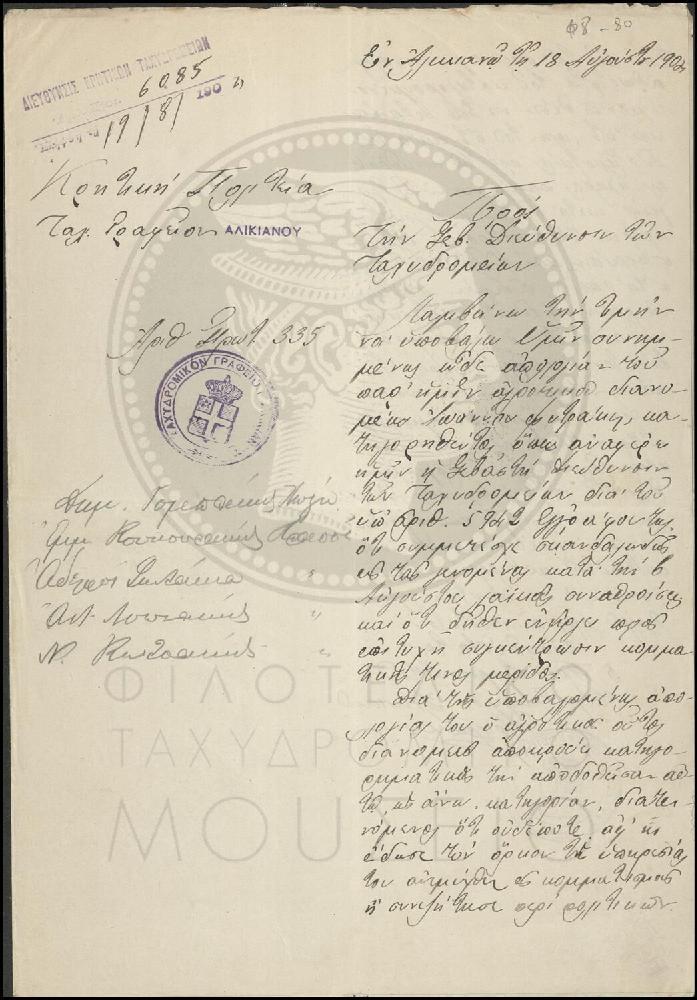 Φ8-80
Ἐν Ἀλικιανῷ τῇ 18 Αὐγούστου 190
ΔΙΕΥΘΥΝΣΙΣ ΚΡΗΤΙΚΩΝ ΤΑΧΥΔΡΟΜΕΙΩΝ
6085
19/8/ 190
Κρητική Πολιτεία
Ταχ. Γραφεῖον ΑΛΙΚΙΑΝΟΥ
Ἀριθ. Πρωτ. 335
ΤΑΧΥΔΡΟΜΙΚΟΝ ΓΡΑΦΕΙΟΝ
Πρός
Τήν Σεβ. Διεύθυνσιν τῶν
Ταχυδρομείων
Λαμβάνω τήν τιμήν
νά ὑποβάλω Ὑμῖν συνημ-
μένως ὧδε ἀπολογίαν τοῦ
παρ' ἡμῖν ἀγροτικοῦ διανο-
μέως κα-
τηγορηθέντος, ὅπως ἀναφέρει
ἡμῖν ἡ Σεβαστή Διεύθυνσις
τῶν Ταχυδρομείων διά τοῦ
ὑπ' ἀριθ. 5942 ἐγγράφου της,
ὅτι συμμετέσχε σκανδαλωδῶς
εἰς τάς γενομένας κατά τήν 6
Αὐγούστου λαϊκάς συναθροίσεις
καί ὅτι δῆθεν ἐνήργει πρός
ἐπιτυχῆ συγκέντρωσιν κομμα-
τικῆς τινος μερίδος.
Διά τῆς ὑποβαλλομένης ἀπο-
λογίας του ὁ ἀγροτικός οὗτος
διανομεύς ἀποκρούει κατηγο-
ρηματικῶς τήν ἀποδοθεῖσαν αὐ-
τῷ ὡς ἄνω κατηγορίαν, διατει-
νόμενος ὅτι οὐδέποτε ἀφ' ἧς
ἔδωσε τόν ὅρκον τῆς ὑπηρεσίας
του ἀνεμίχθη εἰς κομματισμούς
ἤ συνεζήτησε περί πολιτικῶν.
Δημ.
Ἐμμ.
Ἀδελφοί
Ἀντ.
Ν.
ΦΙΛΟΤΕΛΙΚΟ
ΤΑΧΥΔΡΟΜΙΚΟ
ΜΟΥΣΕΙΟ